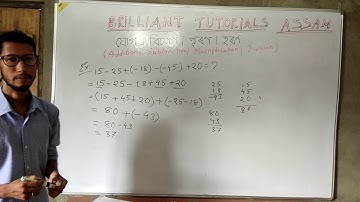 BRILLIANT TUTORIALS ASSAM
যোগ, বিয়োগ, পূৰণ, হৰণ
(Addition, Subtraction, Multiplication, Division)
Ex. 15-25+(-18)-(-45)+20=?
=15-25-18+45+20
=(15+45+20)+(-25-18)
= 80+(-43)
= 80-43
= 37
25
18
43
80
43
37
15
45
20
80